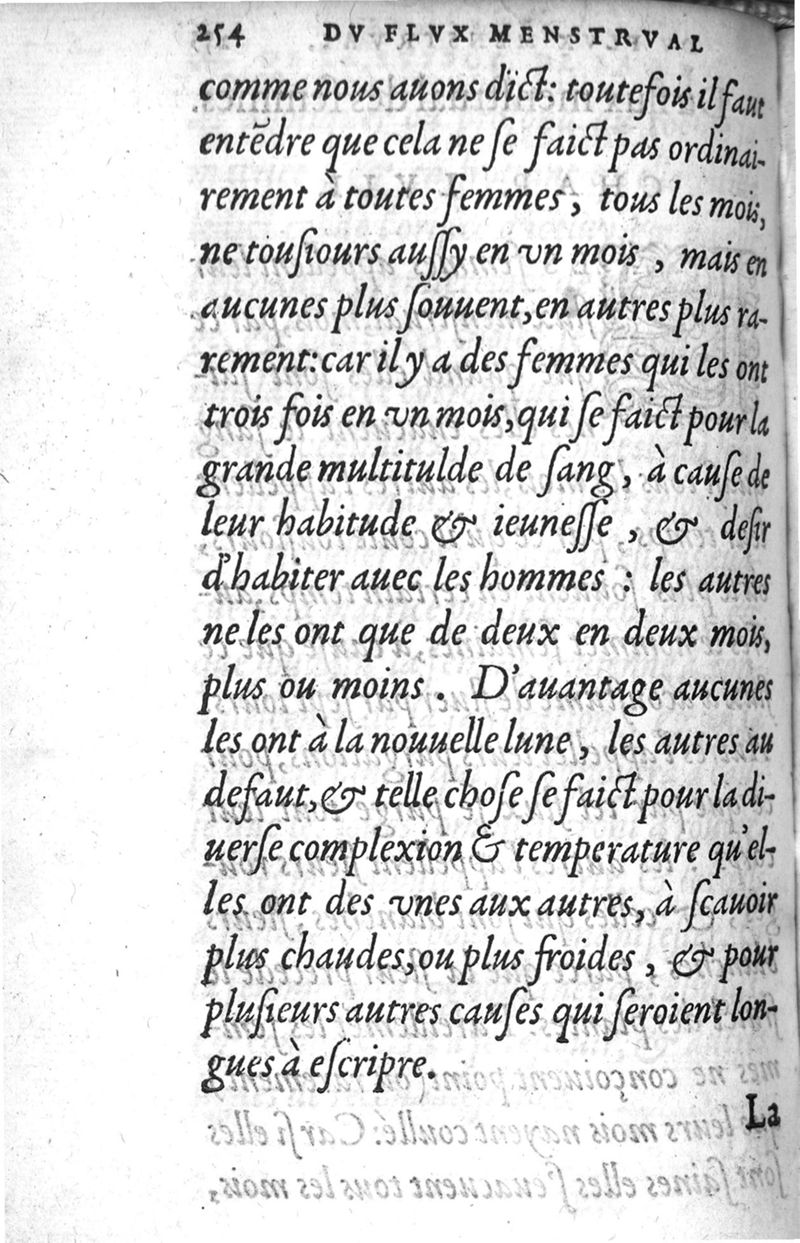 254 DV FLVX MENSTRVAL
comme nous auons dict: toutefois il faut
entēdre que cela ne ſe faict pas ordinai-
rement à toutes femmes, tous les mois,
ne touſiours auſſy en vn mois, mais en
aucunes plus ſouuent, en autres plus ra-
rement: car il y a des femmes qui les ont
trois fois en vn mois, qui ſe faict pour la
grande multitulde de ſang, à cauſe de
leur habitude & ieuneſſe, & deſir
d'habiter auec les hommes: les autres
ne les ont que de deux en deux mois,
plus ou moins. D'auantage aucunes
les ont à la nouuelle lune, les autres au
defaut, & telle choſe ſe faict pour la di-
uerſe complexion & temperature qu'el-
les ont des vnes aux autres, à ſcauoir
plus chaudes, ou plus froides, & pour
pluſieurs autres cauſes qui ſeroient lon-
gues à eſcripre.
La